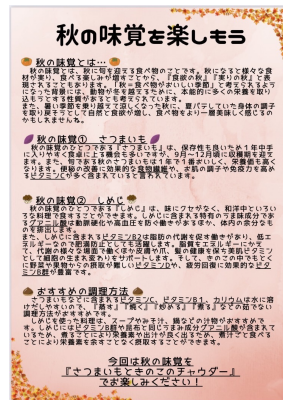 秋の味覚を楽しもう
秋の味覚とは…
秋の味覚とは、秋に旬を迎える食べ物のことです。秋になると様々な食
材が実り、食べる楽しみが増すことから、「食欲の秋」「実りの秋」と表
現されることもあります。「秋＝食べ物がおいしい季節」と考えられるよう
になった背景には、動物が冬を越えるために、本能的に多くの栄養を取り
込もうとする性質があるとも考えられています。
また、暑い季節を乗り越えて涼しくなった秋に、夏バテしていた身体の調子
を取り戻そうとして自然と食欲が増し、食べ物をより一層美味しく感じるの
かもしれませんね。
秋の味覚① さつまいも
秋の味覚のひとつである『さつまいも』は、保存性も良いため１年中手
に入りやすく食卓に上る機会も多いですが、9月～12月頃に収穫期を迎
えます。また、旬である秋のさつまいもは１年で１番おいしく、栄養価も高く
なります。便秘の改善に効果的な食物繊維や、お肌の調子や免疫力を高め
るビタミンCが多く含まれていると言われています。
秋の味覚② しめじ
秋の味覚のひとつである『しめじ』は、味にクセがなく、和洋中といろい
ろな料理で食すことができます。しめじに含まれる特有のうま味成分であ
るグアニル酸は動脈硬化や高血圧を防ぐ働きがあるほか、体内の余分なも
のを排出します。
また、しめじに含まれるビタミンB2は脂肪の代謝を促す働きがあり、低エ
ネルギーなので肥満防止としても活躍します。脂質をエネルギーにかえ
て、代謝の様々な場面で働くほか皮膚や爪、髪の健康を保つ美肌ビタミン
として細胞の生まれ変わりをサポートします。そして、きのこの中でもとく
に野菜や果物からの摂取が難しいビタミンDや、疲労回復に効果的なビタ
ミンB群が豊富です。
おすすめの調理方法
さつまいもなどに含まれるビタミンC、ビタミンB1、カリウムは水に溶
けだしやすいので、『蒸す』『焼く』『炒める』『煮る』などの茹でない
調理方法がおすすめです。
しめじを使った料理は、スープやみそ汁、鍋などの汁物がおすすめで
す。しめじにはビタミンB群や昆布と同じうま味成分グアニル酸が含まれて
いるため、煮ることにより栄養素や出汁が良く出るため、煮汁ごと食べる
ことにより栄養素を余すことなく摂取することができます。
今回は秋の味覚を
『さつまいもときのこのチャウダー』
でお楽しみください！